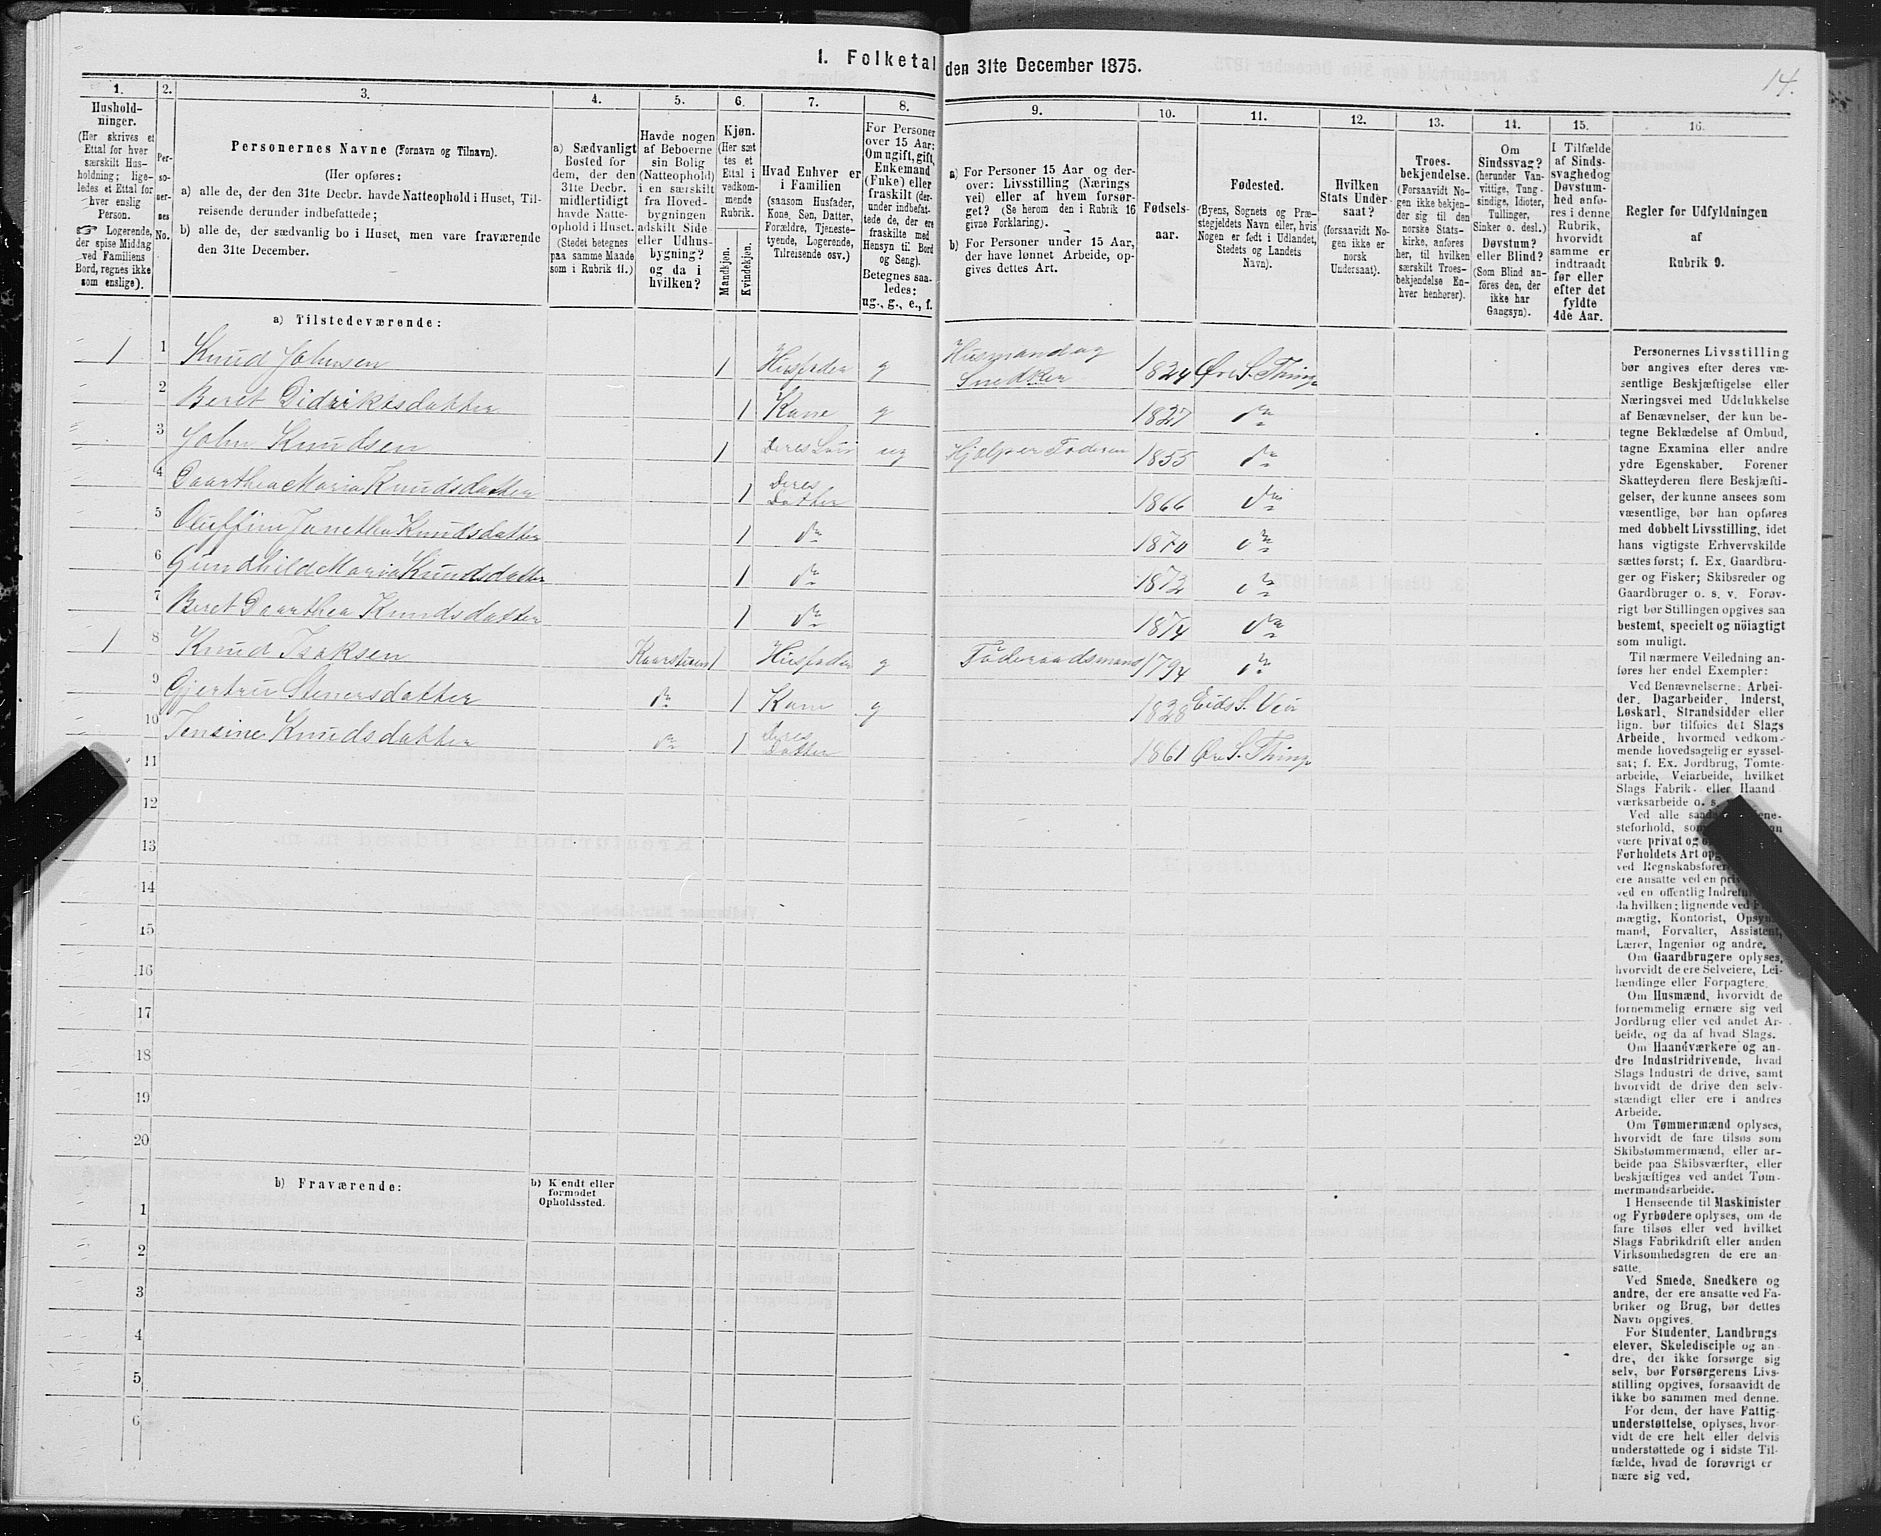 1. Folketal den 31te December 1875.
14.
1.
Hushold-
ninger.
(Her skrives et
Ettal for hver
særskilt Hus-
holdning; lige-
ledes et Ettal for
hver enslig
Person.
☞ Logerende,
der spise Middag
ved Familiens
Bord, regnes ikke
som enslige).
2.
Per-
so-
ner-
nes
No.
3.
Personernes Navne (Fornavn og Tilnavn).
(Her opføres:
a) alle de, der den 31te Decbr. havde Natteophold i Huset, Til-
reisende derunder indbefattede;
b) alle de, der sædvanlig bo i Huset, men vare fraværende
den 31te December.
4.
a) Sædvanligt
Bosted for
dem, der den
31te Decbr.
midlertidigt
havde Natte-
ophold i Huset.
(Stedet betegnes
paa samme Maade
som i Rubrik 11.)
5.
Havde nogen
af Beboerne
sin Bolig
(Natteophold)
i en særskilt
fra Hoved-
bygningen
adskilt Side
eller Udhus-
bygning?
og da i
hvilken?
6.
Kjøn.
(Her sæt-
tes et
Ettal i
vedkom-
mende
Rubrik.
Mandkjøn.
Kvindekjøn.
7.
Hvad Enhver er
i Familien
(saasom Husfader,
Kone, Søn, Datter,
Forældre, Tjeneste-
tyende, Logerende,
Tilreisende osv.)
8.
For Personer
over 15 Aar:
Om ugift, gift,
Enkemand
(Enke) eller
fraskilt (der-
under indbefat-
tede de, der ere
fraskilte med
Hensyn til Bord
og Seng).
Betegnes saa-
ledes:
ug., g., e., f.
9.
a) For Personer 15 Aar og der-
over: Livsstilling (Nærings
vei) eller af hvem forsør-
get? (Se herom den i Rubrik 16
givne Forklaring).
b) For Personer under 15 Aar,
der have lønnet Arbeide, op-
gives dettes Art.
10.
Fødsels-
aar.
11.
Fødested.
(Byens, Sognets og Præ-
stegjeldets Navn eller, hvis
Nogen er født i Udlandet,
Stedets og Landets
Navn).
12.
Hvilken
Stats Under-
saat?
(forsaavidt No-
gen ikke er
norsk
Undersaat).
13.
Troes-
bekjendelse.
(Forsaavidt No-
gen ikke bekjen-
der sig til den
norske Stats-
kirke, anføres
her, til hvilken
særskilt Troes-
bekjendelse En-
hver henhører).
14.
Om
Sindssvag?
(herunder Van-
vittige, Tung-
sindige, Idioter,
Tullinger,
Sinker o. desl.)
Døvstum?
eller Blind?
(Som Blind an-
føres den, der
ikke har
Gangsyn).
15.
I Tilfælde
af Sinds-
svaghed og
Døvstum-
hed anfø-
res i denne
Rubrik,
hvorvidt
samme er
indtraadt
før eller
efter det
fyldte
4de Aar.
16.
Regler for Udfyldningen
af
Rubrik 9.
a) Tilstedeværende:
1 1 Knud Johnsen 1 Husfader g Husmand og Snedker 1824 Øre S. Thing
2 Beret Didriksdatter 1 Kone g 1827 do
3 John Knudsen 1 Deres Søn ug Hjælper Faderen 1855 do
4 Daarthea Maria Knudsdatter 1 Deres Datter 1866 do
5 Oluffine Janetha Knudsdatter 1 do 1870 do
6 Gundhild Maria Knudsdatter 1 do 1872 do
7 Beret Daarthea Knudsdatter 1 do 1874 do
1 8 Knud Isaksen Kaarstuen 1 Husfader g Föderaadsmand 1794 do
9 Gjertru Stenersdatter do 1 Kone g 1828 Eids S. Veø
10 Jensine Knudsdatter do 1 Deres Datter 1861 Øre S. Thing
11
12
13
14
15
16
17
18
19
20
b) Fraværende:
b) Kjendt eller
formodet
Opholdssted.
1
2
3
4
5
6
Personernes Livsstilling
bør angives efter deres væ-
sentlige Beskjæftigelse eller
Næringsvei med Udelukkelse
af Benævnelser, der kun be-
tegne Beklædelse af Ombud,
tagne Examina eller andre
ydre Egenskaber. Forener
Skatteyderen flere Beskjæfti-
gelser, der kunne ansees som
væsentlige, bør han opføres
med dobbelt Livsstilling, idet
hans vigtigste Erhvervskilde
sættes først; f. Ex. Gaardbru-
ger og Fisker; Skibsreder og
Gaardbruger o. s. v. Forøv-
rigt bør Stillingen opgives saa
bestemt, specielt og nöiagtigt
som muligt.
Til nærmere Veiledning an-
føres her endel Exempler:
Ved Benævnelserne: Arbei-
der, Dagarbeider, Inderst,
Løskarl, Strandsidder eller
lign. bør tilføies det Slags
Arbeide, hvormed vedkom-
mende hovedsagelig er syssel-
sat; f. Ex. Jordbrug, Tomte-
arbeide, Veiarbeide, hvilket
Slags Fabrik- eller Haand-
værksarbeide o. s.
Ved alle saad ene-
steforhold, som an
være privat og o
Forholdets Art op
ved Regnskabsføre
ere ansatte ved en pri
ved en offentlig Indret
da hvilken; lignende ved F
mægtig, Kontorist, Opsyns-
mand, Forvalter, Assistent,
Lærer, Ingeniør og andre.
Om Gaardbrugere oplyses,
hvorvidt de ere Selveiere, Lei-
lændinge eller Forpagtere.
Om Husmænd, hvorvidt de
fornemmelig ernære sig ved
Jordbrug eller ved andet Ar-
beide, og da af hvad Slags.
Om Haandværkere og an-
dre Industridrivende, hvad
Slags Industri de drive, samt
hvorvidt de drive den selv-
stændigt eller ere i andres
Arbeide.
Om Tømmermænd oplyses,
hvorvidt de fare tilsøs som
Skibstømmermænd, eller ar-
beide paa Skibsværfter, eller
beskjæftiges ved andet Tøm-
mermandsarbeide.
I Henseende til Maskinister
og Fyrbødere oplyses, om de
fare tilsøs eller ved hvilket
Slags Fabrikdrift eller anden
Virksomhedsgren de ere an-
satte.
Ved Smede, Snedkere og
andre, der ere ansatte ved Fa-
briker og Brug, bør dettes
Navn opgives.
For Studenter, Landbrugs-
elever, Skoledisciple og an-
dre, der ikke forsørge sig
selv, bør Forsørgerens Livs-
stilling opgives, forsaavidt de
ikke bo sammen med denne.
For dem, der have Fattig-
understøttelse, oplyses, hvor-
vidt de ere helt eller delvis
understøttede og i sidste Til-
fælde, hvad de forøvrigt er-
nære sig ved.